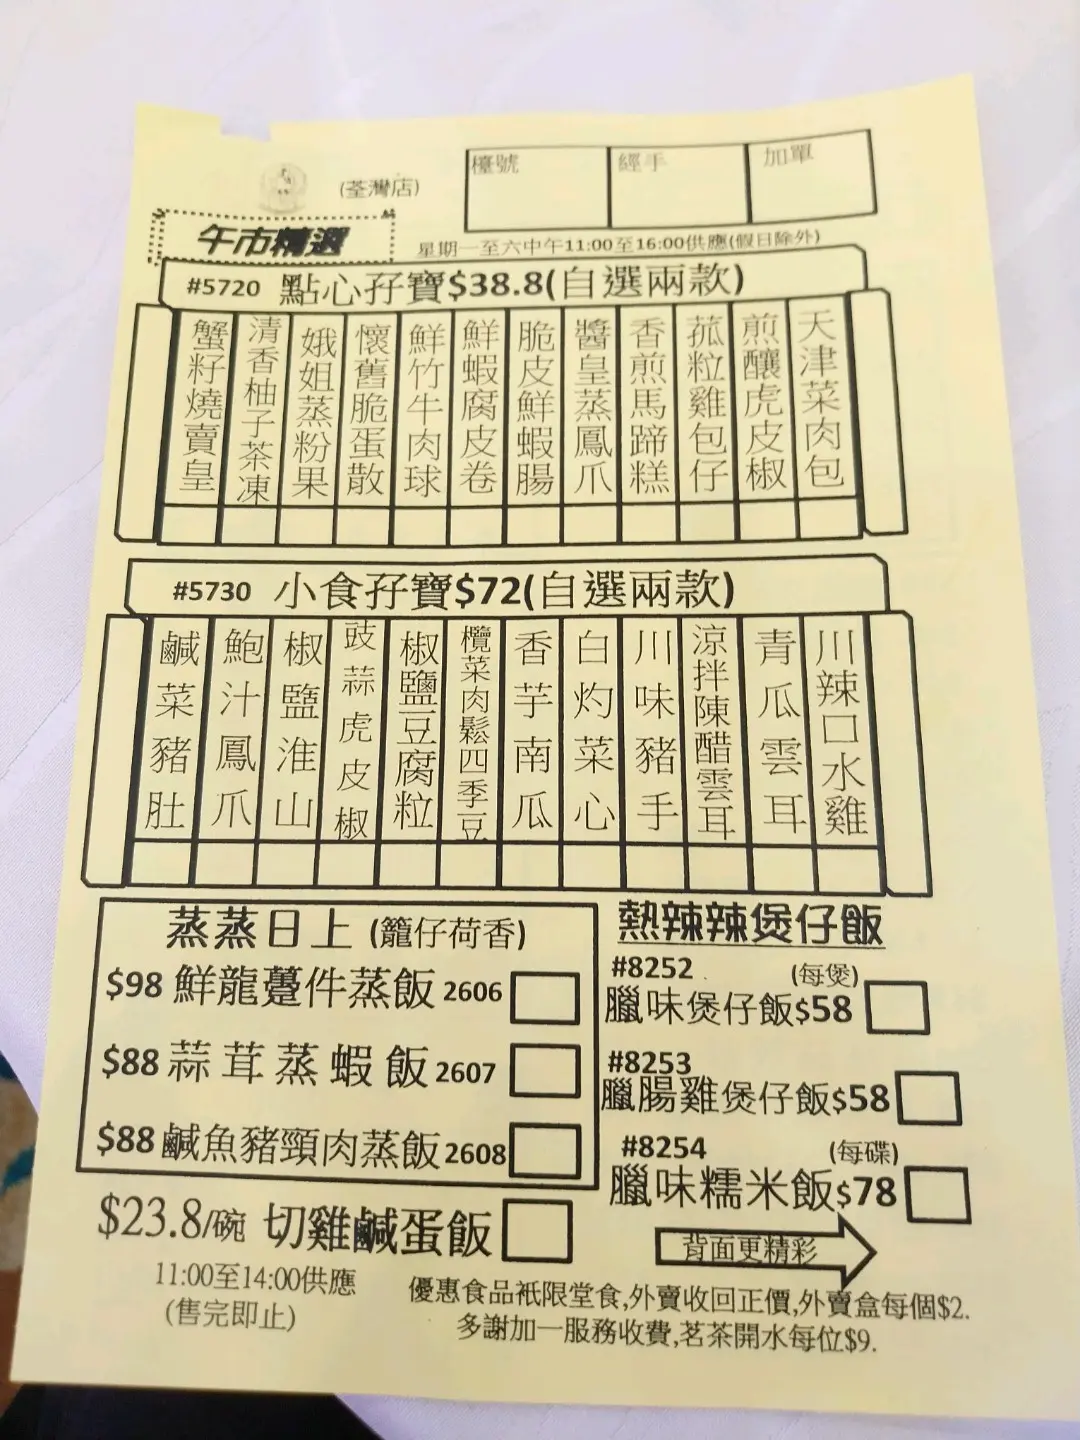 (荃灣店)
檯號
經手
加單
午市精選
星期一至六中午11:00至16:00供應(假日除外)
#5720 點心孖寶$38.8(自選兩款)
蟹籽燒賣皇
清香柚子茶凍
娥姐蒸粉果
懷舊脆蛋散
鮮竹牛肉球
鮮蝦腐皮卷
脆皮鮮蝦腸
醬皇蒸鳳爪
香煎馬蹄糕
菰粒雞包仔
煎釀虎皮椒
天津菜肉包
#5730 小食孖寶$72(自選兩款)
鹹菜豬肚
鮑汁鳳爪
椒鹽淮山
豉蒜虎皮椒
椒鹽豆腐粒
欖菜肉鬆四季豆
香芋南瓜
白灼菜心
川味豬手
涼拌陳醋雲耳
青瓜雲耳
川辣口水雞
蒸蒸日上 (籠仔荷香)
$98 鮮龍躉件蒸飯 2606
$88 蒜茸蒸蝦飯 2607
$88 鹹魚豬頸肉蒸飯 2608
$23.8/碗 切雞鹹蛋飯
11:00至14:00供應
(售完即止)
熱辣辣煲仔飯
#8252 (每煲)
臘味煲仔飯$58
#8253
臘腸雞煲仔飯$58
#8254 (每碟)
臘味糯米飯$78
背面更精彩
優惠食品祇限堂食,外賣收回正價,外賣盒每個$2.
多謝加一服務收費,茗茶開水每位$9.